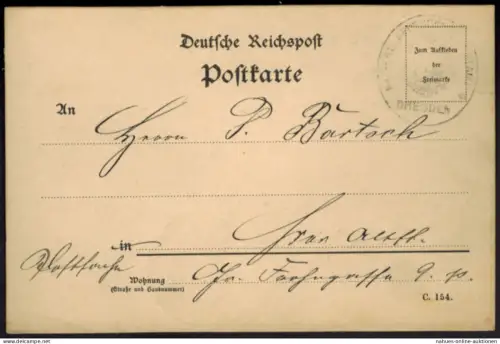 Deutsche Reichspost
Postkarte
Zum Aufkleben
der
Freimarke
DRESDEN
An
Herrn P. Bartsch
in Hier Altst.
Postsache
Wohnung
(Straße und Hausnummer)
Gr. 9. p.
C. 154.
nahues-online-auktionen